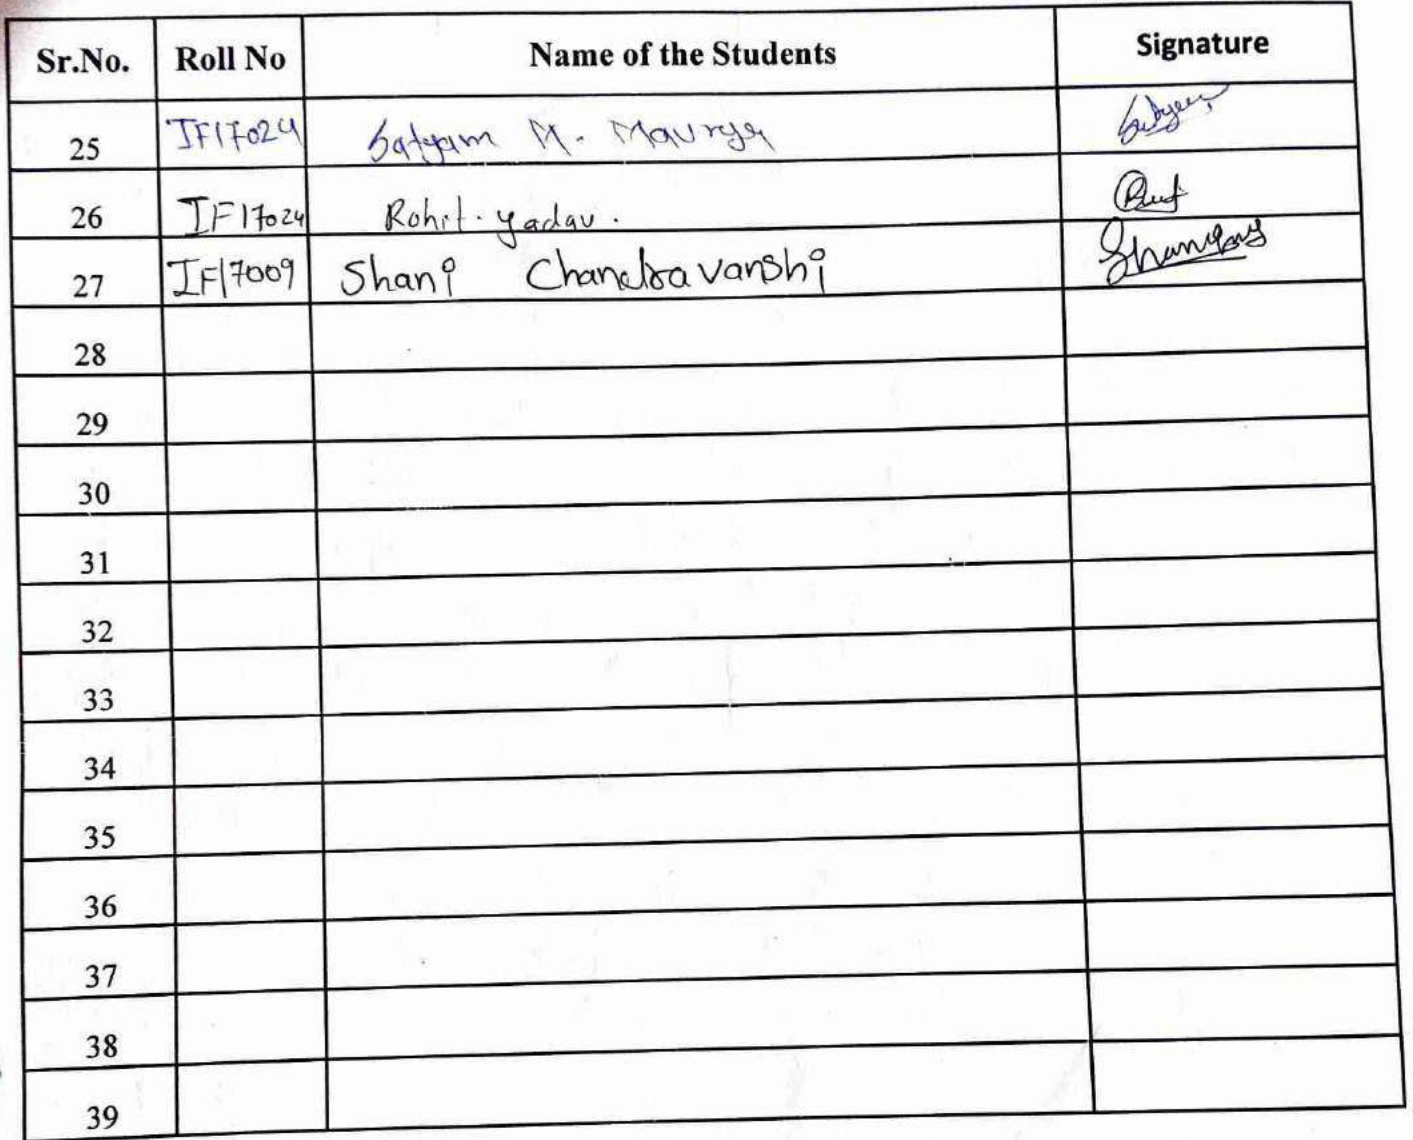 Sr.No. Roll No Name of the Students Signature
25 IF17024 Satyam M. Maurya
26 IF17024 Rohit yadav.
27 IF17009 Shani Chandravanshi
28
29
30
31
32
33
34
35
36
37
38
39